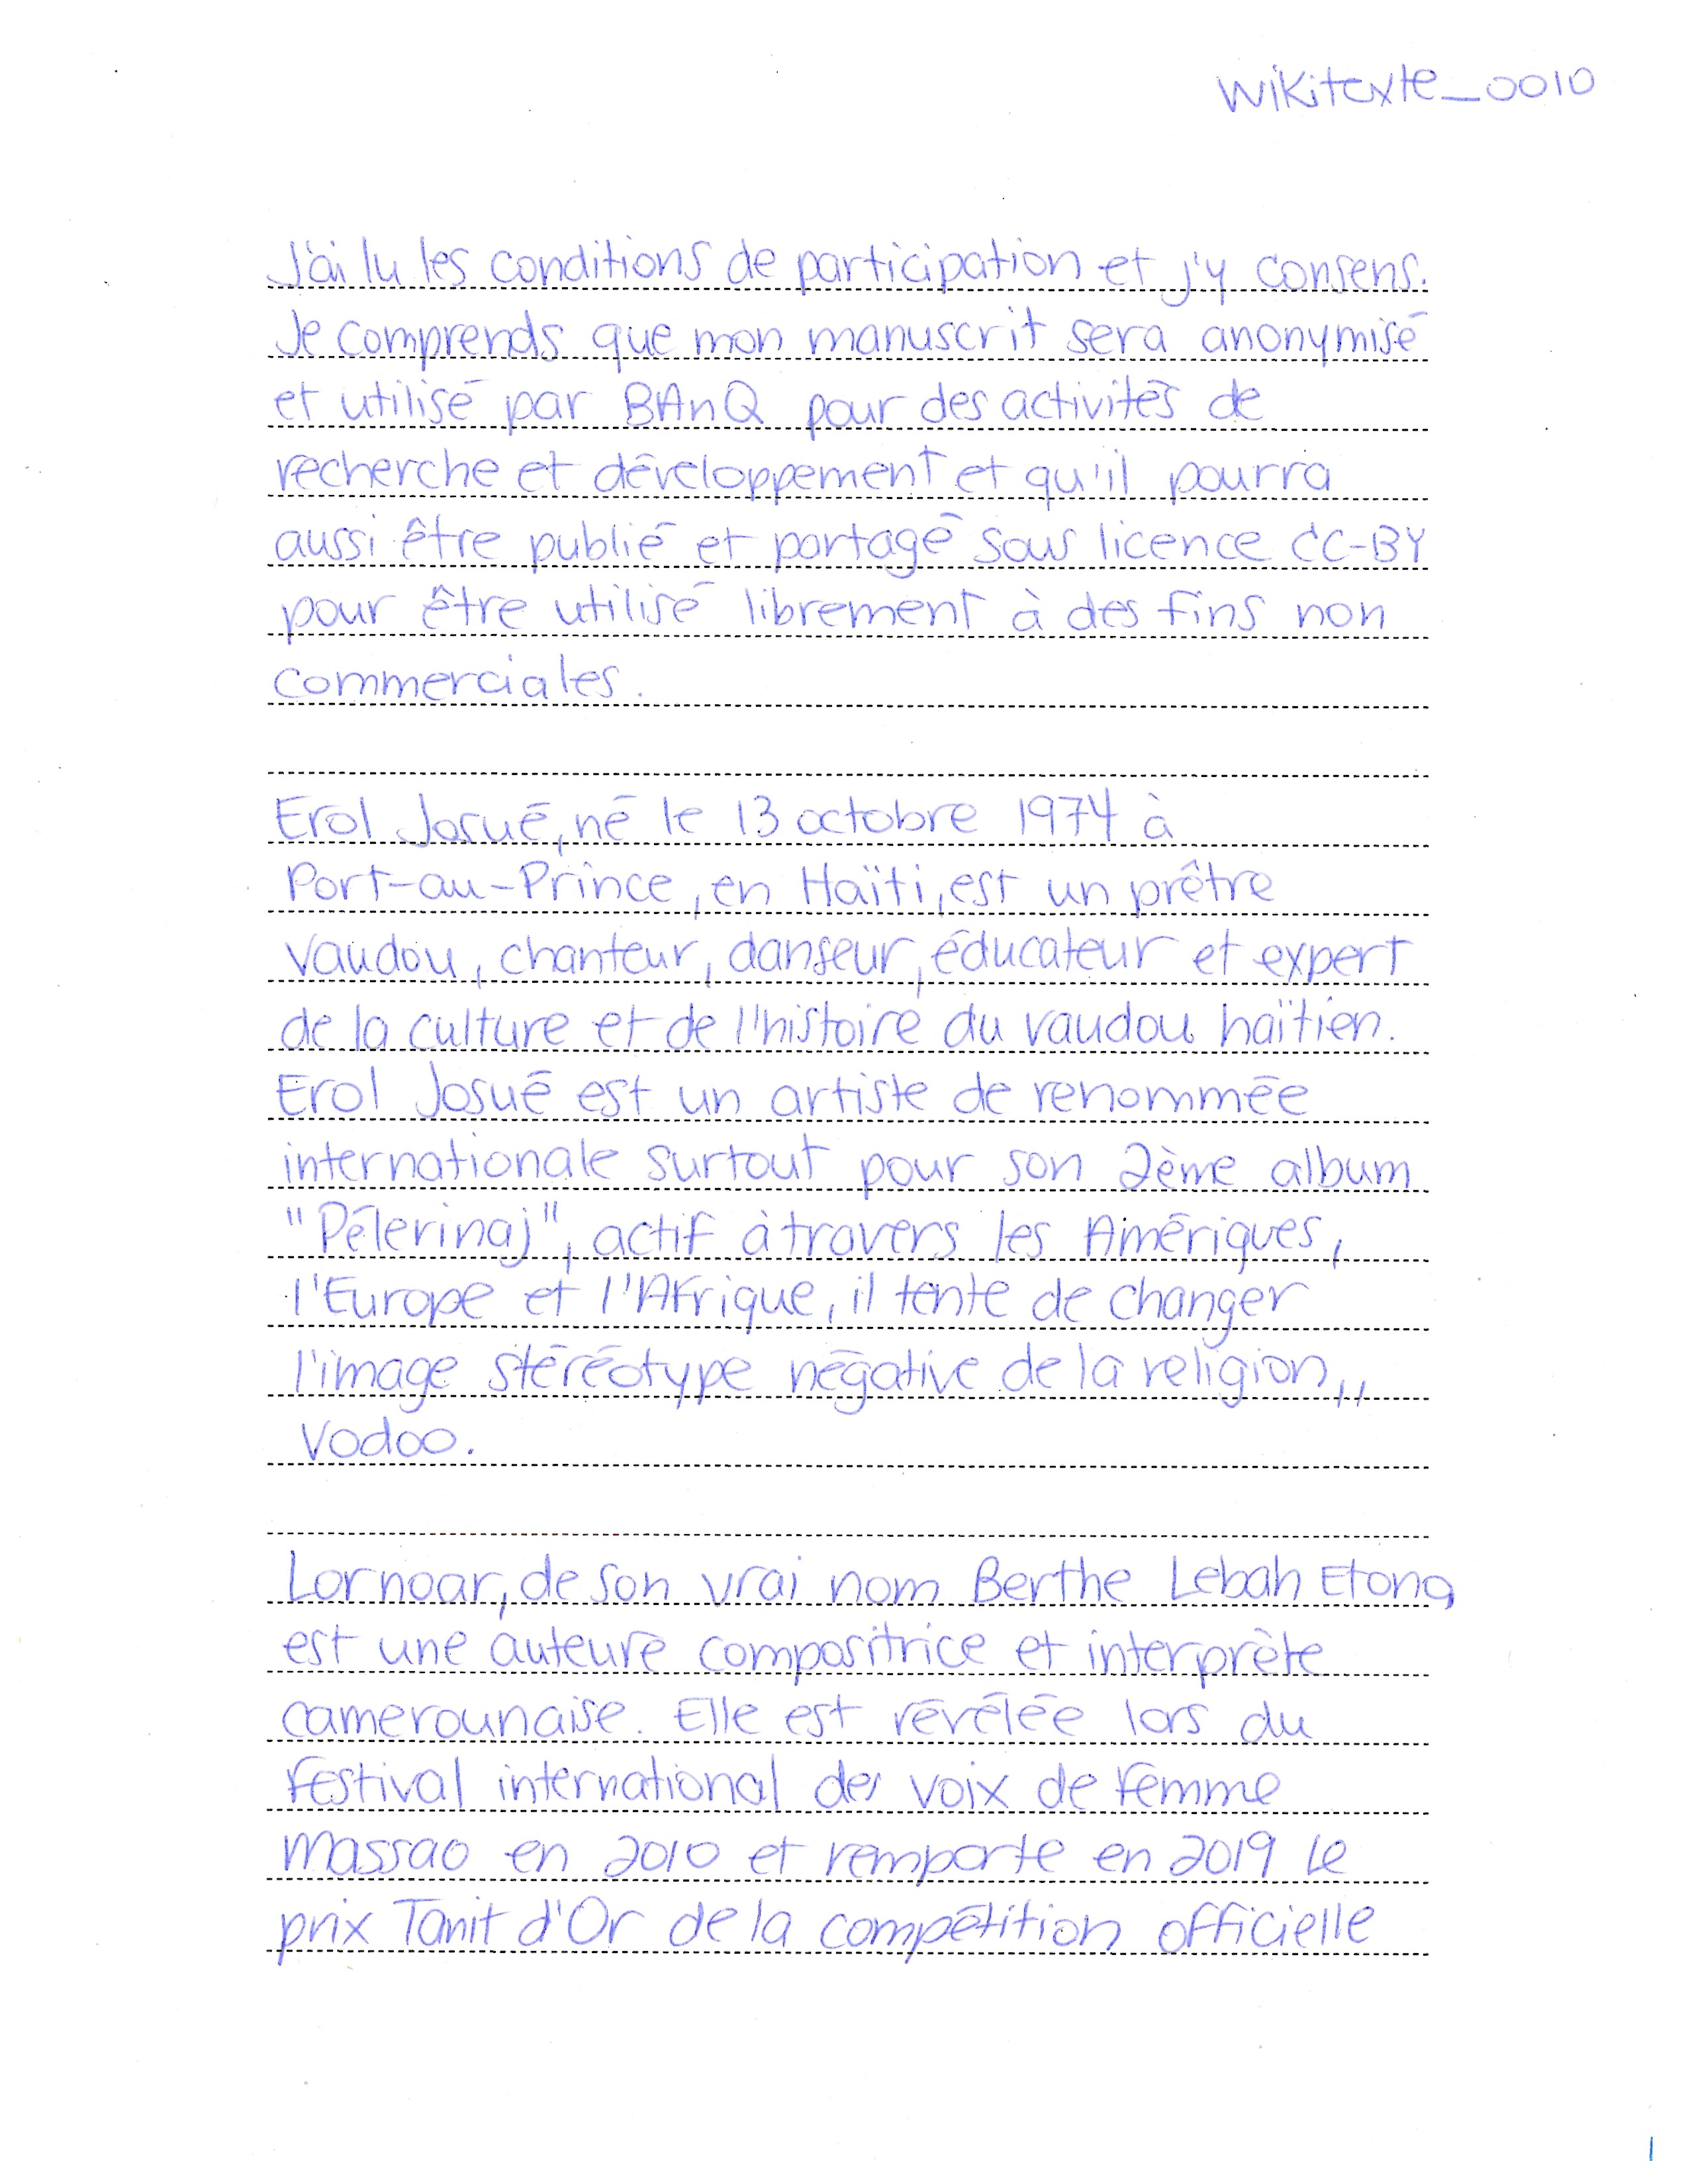 Wikitexte_0010
J'ai lu les conditions de participation et j'y consens.
Je comprends que mon manuscrit sera anonymisé
et utilisé par BAnQ pour des activités de
recherche et développement et qu'il pourra
aussi être publié et partagé sous licence CC-BY
pour être utilisé librement à des fins non
commerciales.
Erol Josué, né le 13 octobre 1974 à
Port-au-Prince, en Haïti, est un prêtre
vaudou, chanteur, danseur, éducateur et expert
de la culture et de l'histoire du vaudou haïtien.
Erol Josué est un artiste de renommée
internationale surtout pour son 2ème album
"Pélerinaj", actif à travers les Amériques,
l'Europe et l'Afrique, il tente de changer
l'image stéréotype négative de la religion,,
Vodoo.
Lornoar, de son vrai nom Berthe Lebah Etong,
est une auteure compositrice et interprète
camerounaise. Elle est révélée lors du
festival international des voix de femme
Massao en 2010 et remporte en 2019 le
prix Tanit d'Or de la compétition officielle
1